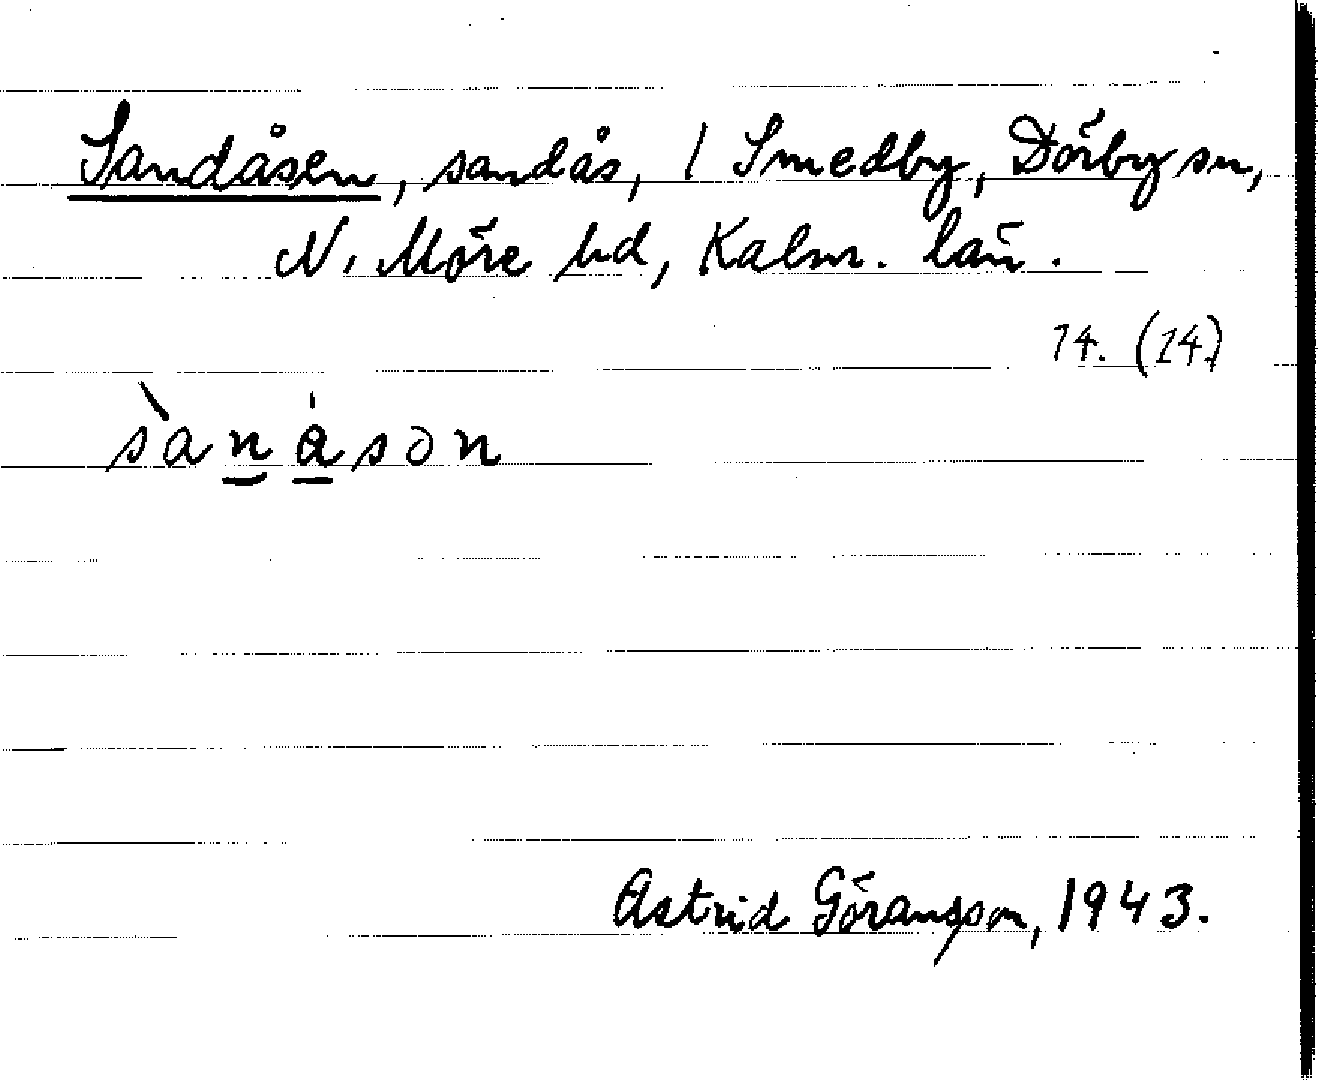 Sandåsen, sandås, / Smedby, Dörby sn,
N. Möre hd, Kalm. län.
14. (14)
sànåsən
Astrid Göransson, 1943.